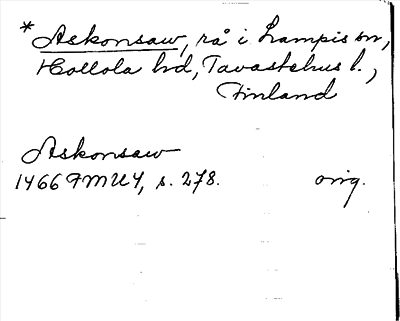 * Askonsaw, rå i Lampis sn,
Hollola hd, Tavastehus l.,
Finland
Askonsaw
1466 FMU4, s. 278. orig.